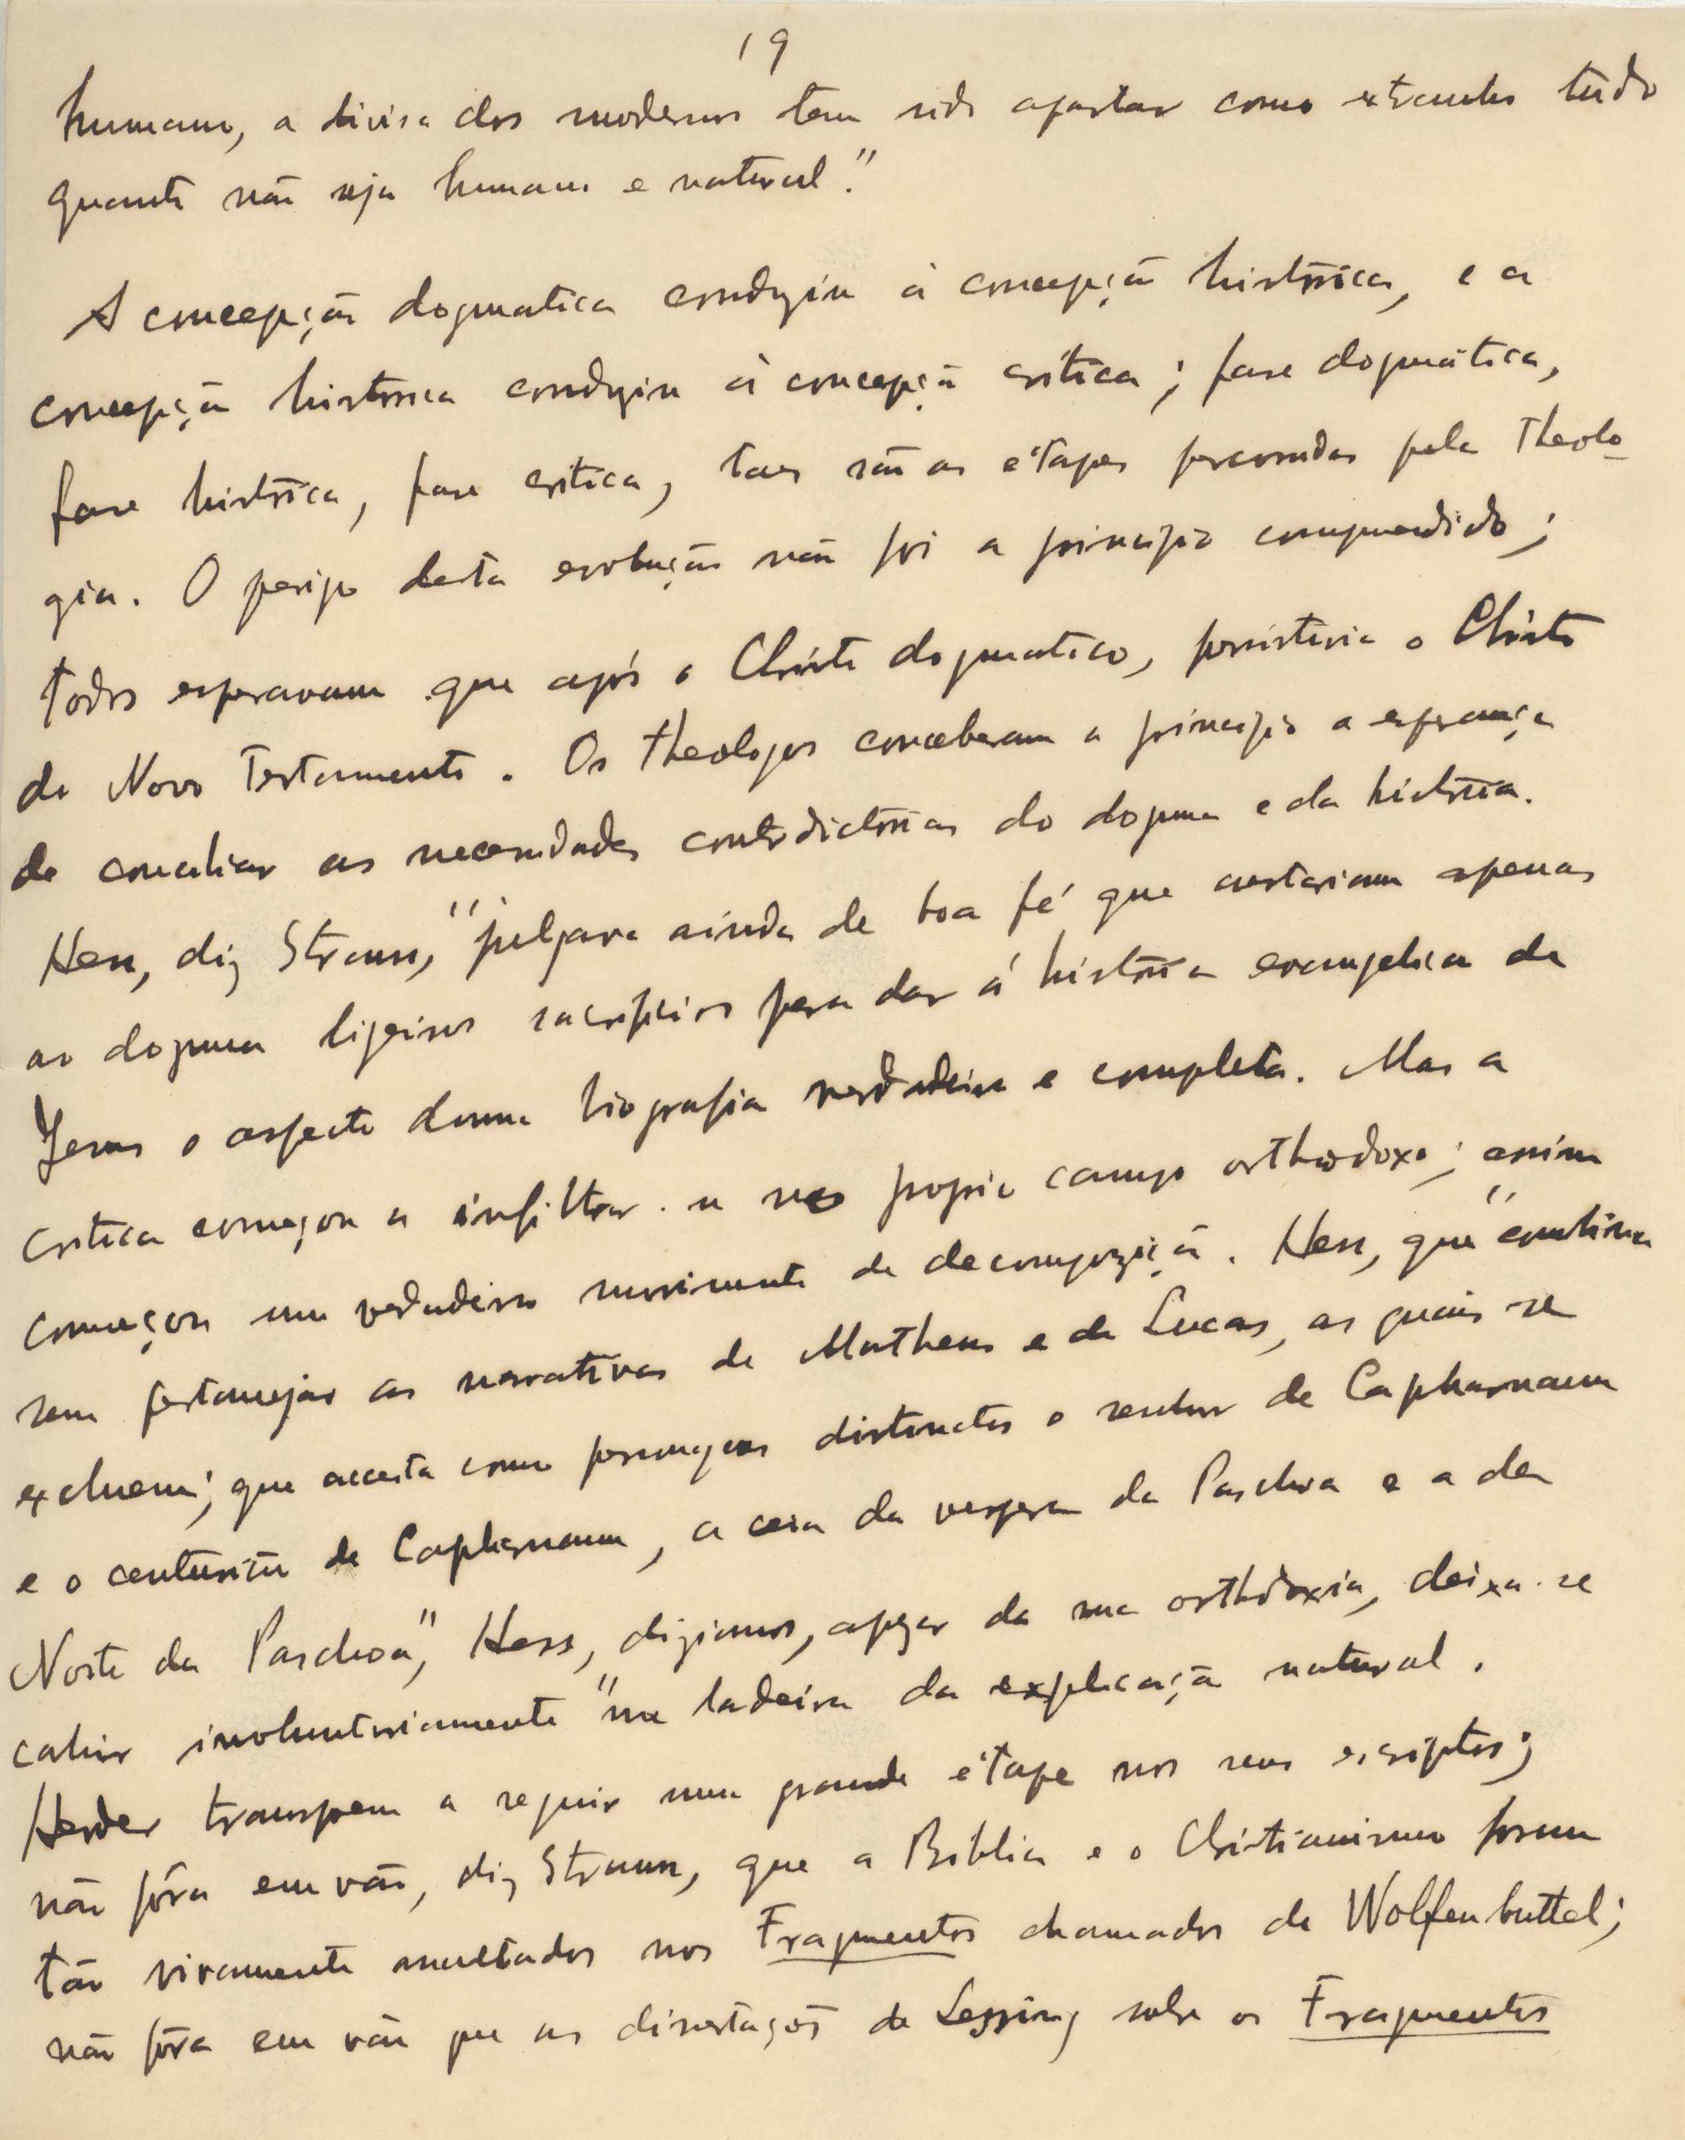 19
humano, a divisa dos modernos tem sido apartar como extranho tudo
quanto não seja humano e natural."
A concepção dogmatica conduziu á concepção histórica, e a
concepção histórica conduziu á concepção crítica; fase dogmática,
fase histórica, fase crítica, taes são as étapes percorridas pela Theolo-
gia. O perigo desta evolução não foi a principio comprehendido;
todos esperavam que após o Christo dogmatico, persistiria o Christo
do Novo Testamento. Os theologos conceberam a principio a esperança
de conciliar as necessidades contradictórias do dogma e da história.
Hess, diz Strauss, "julgava ainda de boa fé que custariam apenas
ao dogma ligeiros sacrificios para dar á história evangelica de
Jesus o aspecto duma biografia verdadeira e completa. Mas a
critica começou a infiltrar-se no proprio campo orthodoxo; assim
começou um verdadeiro movimento de decomposição. Hess, que "combina
sem pestanejar as narrativas de Matheus e de Lucas, as quais se
excluem; que acceita como personagens distinctos o senhor de Capharnaum
e o centurião de Capharnaum, a ceia da vespera da Paschoa e a da
Noite da Paschoa", Hess, diziamos, apezar da sua orthodoxia, deixa-se
cahir involuntariamente "na ladeira da explicação natural.
Herder transpoem a seguir uma grande étape nos seus escriptos;
não fôra em vão, diz Strauss, que a Biblia e o Christianismo foram
tão vivamente assaltados nos Fragmentos chamados de Wolfenbuttel;
não fôra em vão que as dissertações de Lessing sobre os Fragmentos